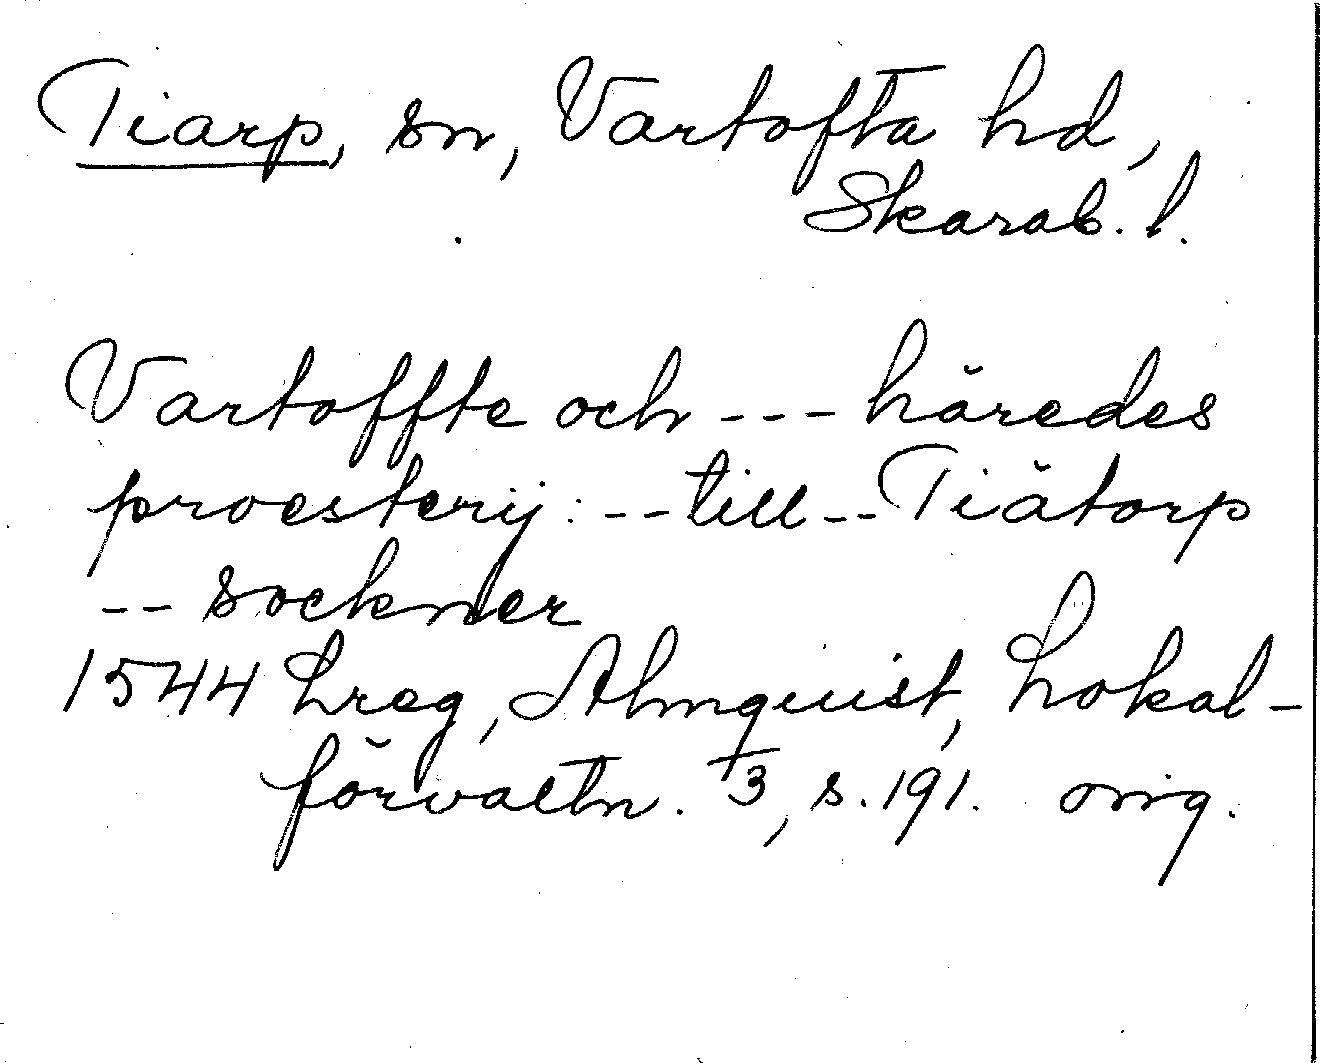 Tiarp, sn, Vartofta hd,
Skarab. l.
Vartoffte och --- häredes
proesterij: -- till -- Tiätorp
-- sockner
1544 Lreg, Almquist, Lokal-
förvaltn. 3, s. 191. orig.